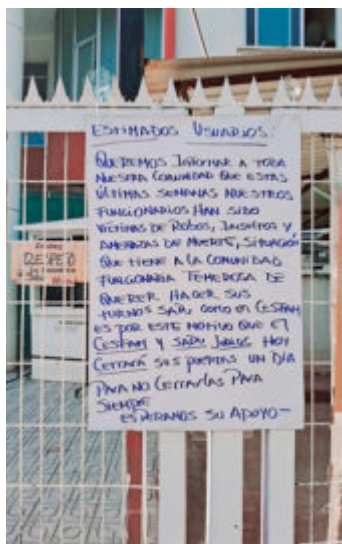 ESTIMADOS USUARIOS:
QUEREMOS INFORMAR A TODA
NUESTRA COMUNIDAD QUE ESTAS
ÚLTIMAS SEMANAS NUESTROS
FUNCIONARIOS HAN SIDO
VÍCTIMAS DE ROBOS, INSULTOS Y
AMENAZAS DE MUERTE, SITUACIÓN
QUE TIENE A LA COMUNIDAD
FUNCIONARIA TEMEROSA DE
QUERER HACER SUS
TURNOS SAPU COMO EN CESFAM
ES POR ESTE MOTIVO QUE EL
CESFAM Y SAPU HOY
CERRARÁ SUS PUERTAS UN DÍA
PARA NO CERRARLAS PARA
SIEMPRE
ESPERAMOS SU APOYO-